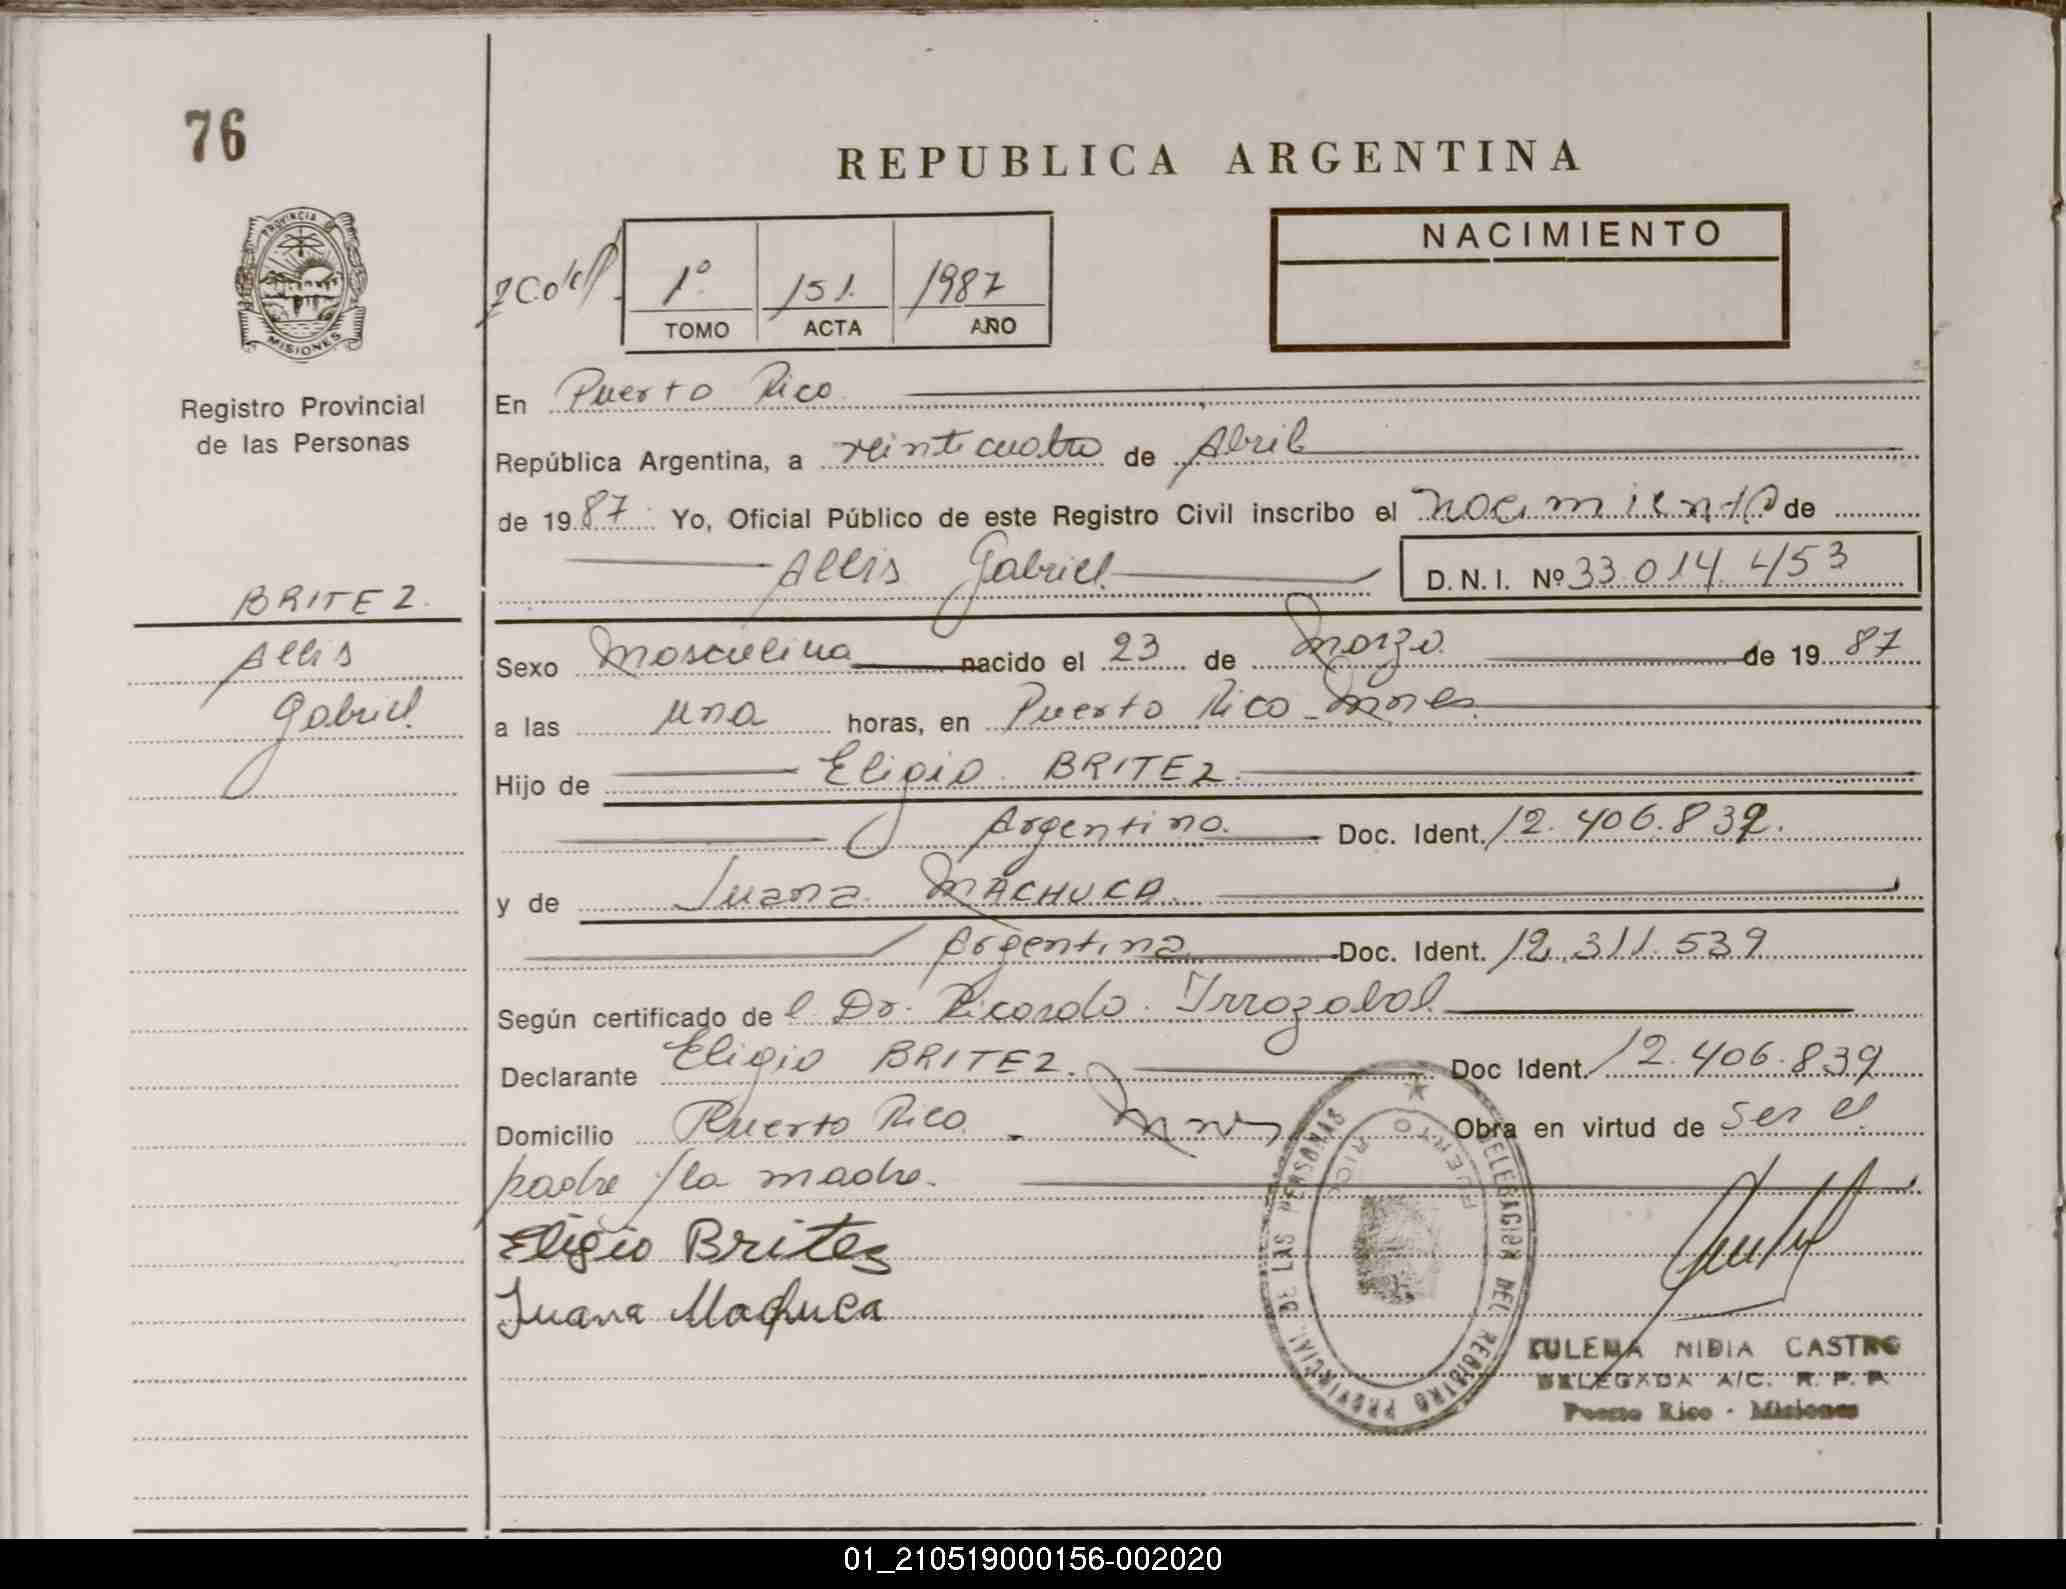 76
REPUBLICA ARGENTINA
PROVINCIA DE
MISIONES
Registro Provincial
de las Personas
1º 151 1987
TOMO ACTA AÑO
NACIMIENTO
En Puerto Rico
República Argentina, a veinticuatro de Abril
de 1987 Yo, Oficial Público de este Registro Civil inscribo el nacimiento de
Allis Gabriel D.N.I. Nº 33.014.453
BRITEZ
Allis
Gabriel
Sexo Masculino nacido el 23 de Marzo de 1987
a las una horas, en Puerto Rico - Mnes
Hijo de Eligio BRITEZ
Argentino Doc. Ident. 12.406.839
y de Juana MACHUCA
Argentina Doc. Ident. 12.311.539
Según certificado del Dr. Ricardo Irrazabal
Declarante Eligio BRITEZ Doc Ident. 12.406.839
Domicilio Puerto Rico - Mnes Obra en virtud de ser el
padre /la madre.
Eligio Britez
Juana Machuca
DELEGACION DEL REGISTRO PROVINCIAL DE LAS PERSONAS
PUERTO RICO
ZULEMA NIDIA CASTRO
DELEGADA A/C. R. P. P.
Puerto Rico - Misiones
01_210519000156-002020